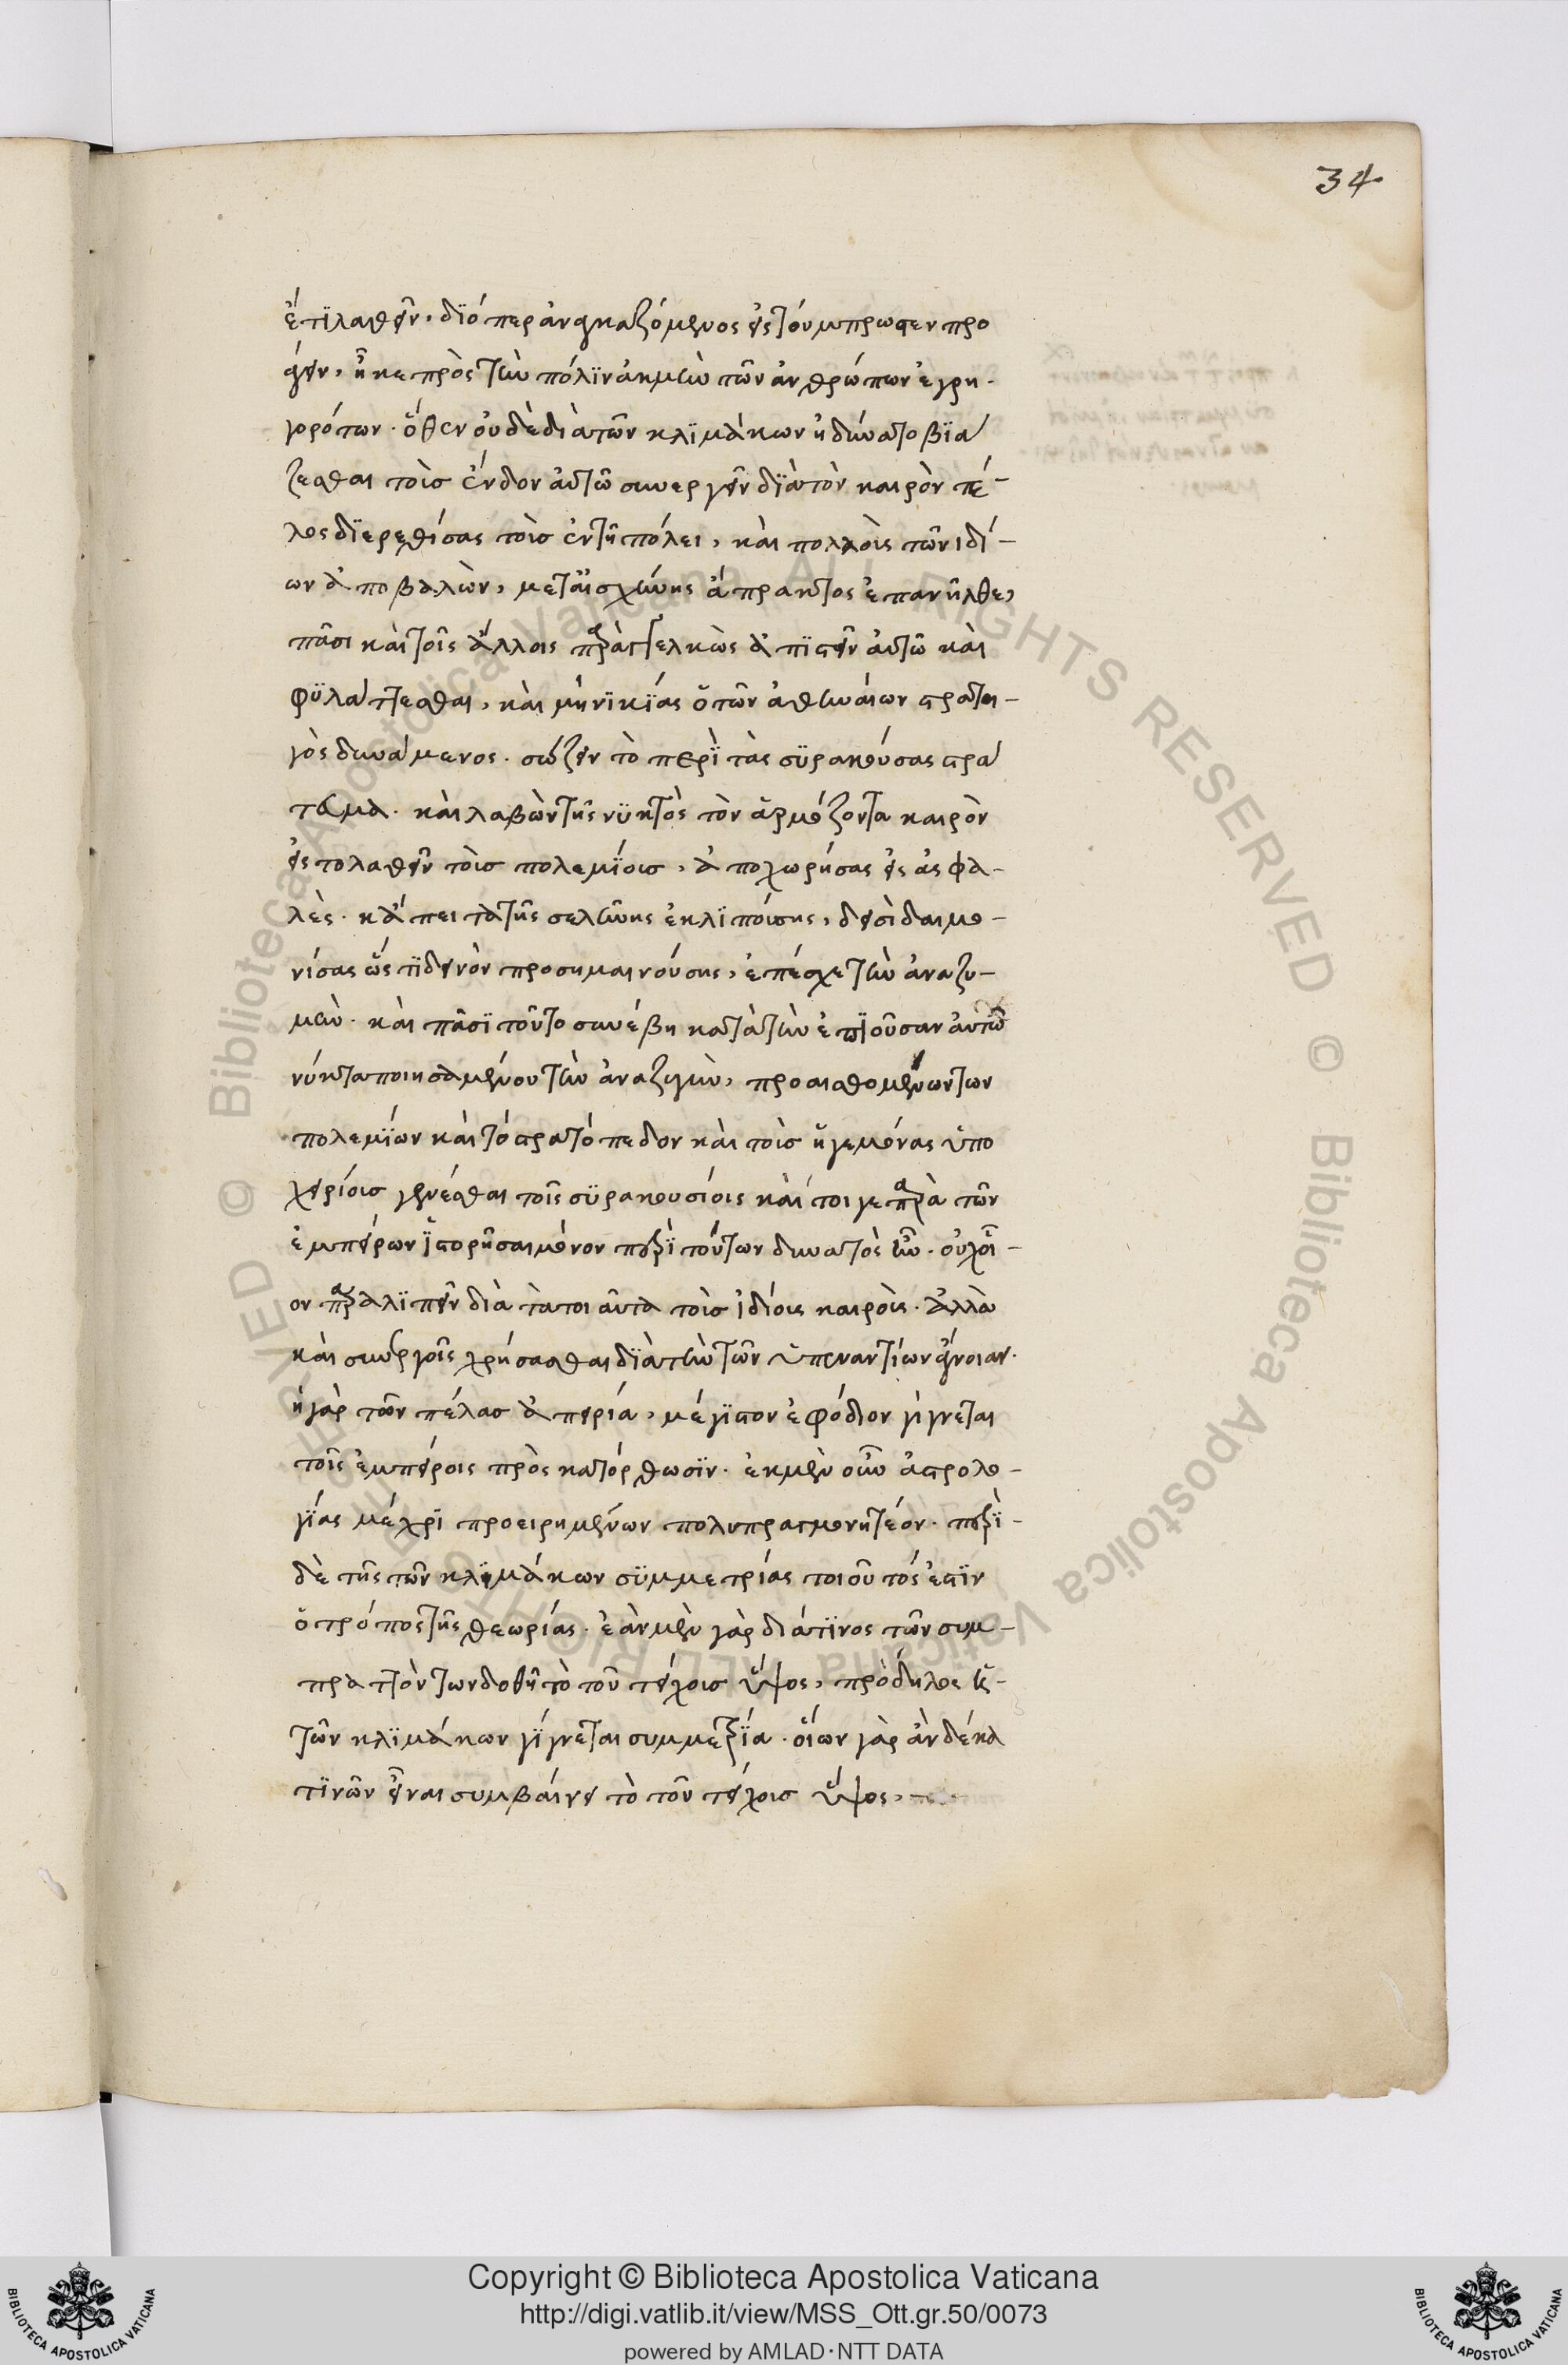 34
ἔτι λαθεῖν. διόπερ ἀναγκαζόμενος εἰς τοὔμπρωσεν προ
άγειν, ἧκε πρὸς τὴν πόλιν ἀκμὴν τῶν ἀνθρώπων ἐγρη-
γορότων. ὅθεν οὐδὲ διὰ τῶν κλιμάκων ἠδύνατο βιά
ζεσθαι τοὺσ ἔνδον αὐτῶ συνεργεῖν διὰ τὸν καιρὸν τέ-
λος διερεθίσας τοὺσ ἐν τῆ πόλει, καὶ πολλοὺς τῶν ἰδί-
ων ἀποβαλὼν, μετ' αἰσχύνης ἄπρακτος ἐπανῆλθε,
πᾶσι καὶ τοῖς ἄλλοις παραγγελκὼς ἀπιστεῖν αὐτῶ καὶ
φυλάττεσθαι, καὶ μὴν νικίας ὁ τῶν ἀθηναίων στρατη-
γὸς δυνάμενος. σώζειν τὸ περὶ τὰς συρακούσας στρά
τευμα. καὶ λαβὼν τῆς νυκτὸς τὸν ἁρμόζοντα καιρὸν
εἰς τὸ λαθεῖν τοὺσ πολεμίουσ, ἀποχωρήσας εἰς ἀσφα-
λὲς. κἄπειτα τῆς σελήνης ἐκλιπούσης, δεισιδαιμο-
νίσας ὥς τι δεινὸν προσημαινούσης, ἐπέσχε τὴν ἀναζυ-
γὴν. καὶ πᾶσι τοῦτο συνέβη κατὰ τὴν ἐπιοῦσαν αὐτῶ
νύκτα ποιησαμένου τὴν ἀναζυγὴν, προαισθομένων τῶν
πολεμίων καὶ τὸ στρατόπεδον καὶ τοὺσ ἡγεμόνας ὑπο
χειρίουσ γενέσθαι τοῖς συρακουσίοις καίτοι γε παρὰ τῶν
ἐμπείρων ἱστορῆσαι μόνον περὶ τούτων δυνατὸς ἦν. οὐχ οἷ-
ον παραλιπεῖν διὰ τὰ τοιαῦτα τοὺσ ἰδίους καιροὺς. ἀλλὰ
καὶ συνεργοῖς χρήσασθαι διὰ τὴν τῶν ὑπεναντίων ἄγνοιαν.
ἡ γὰρ τῶν πέλασ ἀπειρία, μέγιστον ἐφόδιον γίγνεται
τοῖς ἐμπείροις πρὸς κατόρθωσιν. ἐκ μὲν οὖν ἀστρολο-
γίας μέχρι προειρημένων πολυπραγμονητέον. περὶ-
δὲ τῆς τῶν κλιμάκων συμμετρίας τοιοῦτός ἐστιν
ὁ τρόπος τῆς θεωρίας. ἐὰν μὲν γὰρ διά τινος τῶν συμ-
πραττόντων δοθῆ τὸ τοῦ τείχουσ ὕψος, πρόδηλος ἡ-
τῶν κλιμάκων γίγνεται συμμετρία. οἵων γὰρ ἂν δέκα
τινῶν εἶναι συμβαίνει τὸ τοῦ τείχουσ ὕψος,
Copyright © Biblioteca Apostolica Vaticana
http://digi.vatlib.it/view/MSS_Ott.gr.50/0073
powered by AMLAD·NTT DATA